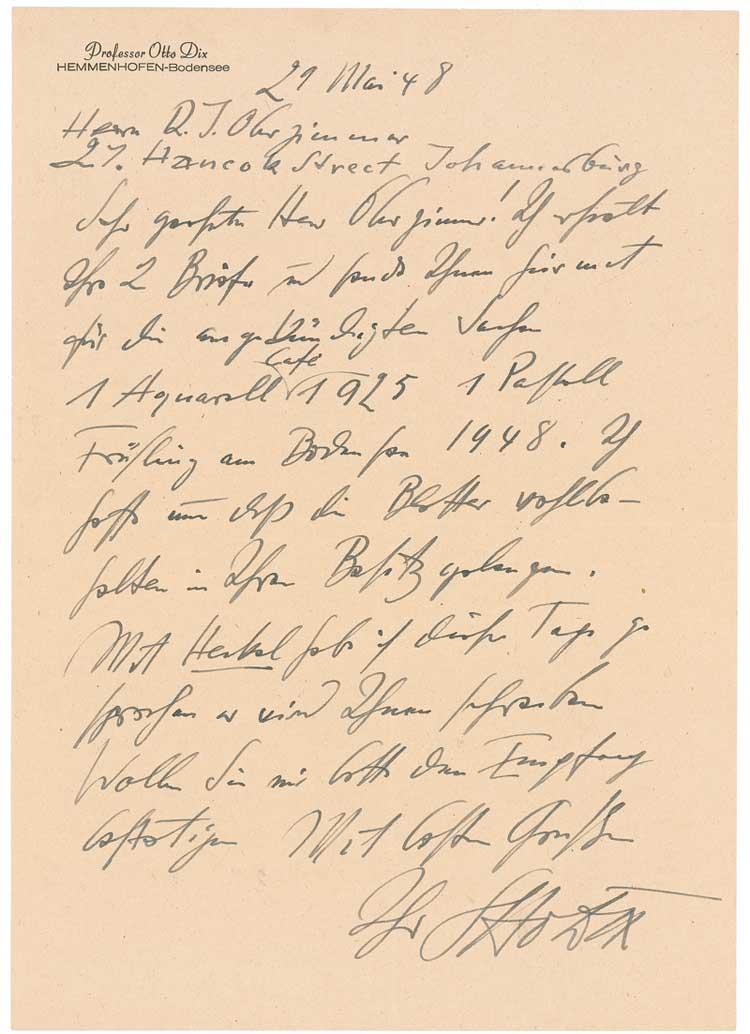 Professor Otto Dix
HEMMENHOFEN-Bodensee
21 Mai 48
Herrn R. J. Oberzimmer
27. Hancock Street Johannesburg
Sehr geehrter Herr Oberzimmer! Ich erhielt
Ihre 2 Briefe und sende Ihnen hiermit
für die angekündigten Sachen
Café
1 Aquarell 1925 1 Pastell
Frühling am Bodensee 1948. Ich
hoffe nun daß die Blätter wohlbe-
halten in Ihren Besitz gelangen.
Mit Heckel habe ich dieser Tage ge
sprochen er wird Ihnen schreiben
Wollen Sie mir bitte den Empfang
bestätigen Mit besten Grüßen
Ihr Otto Dix